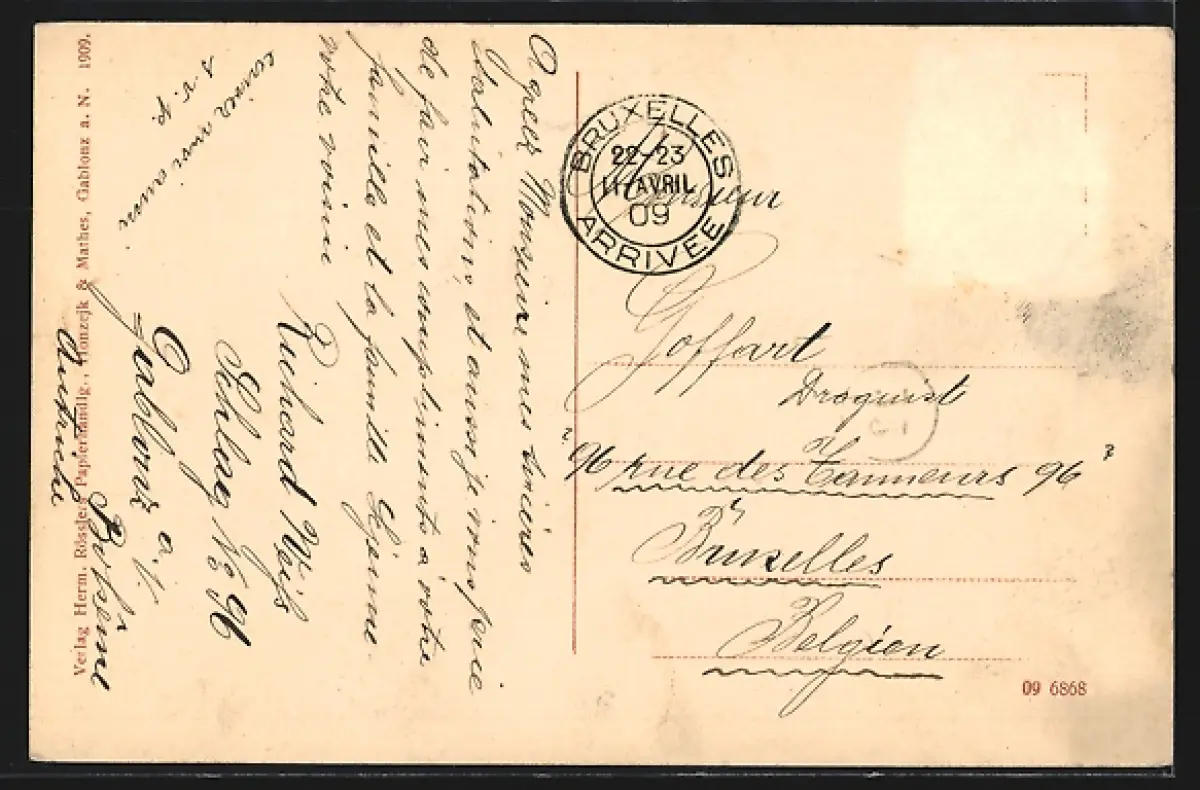 Agreez Monsieur, mes sincères
salutations, et aussi je vous prie
de fair mes compliments a votre
famille et la famille
votre voisin
Richard Weiſs
Schlag No 96
Gablonz a. N.
Böhême
Autriche
s. v. p.
Verlag Herm. Rössler, Papierhandlg., Honzejk & Mathes, Gablonz a. N. 1909.
BRUXELLES
22-23
11 AVRIL
09
ARRIVEE
Monsieur
Goffart
Droguist
96 rue des Tanneurs 96
Brüxelles
Belgien
09 6868